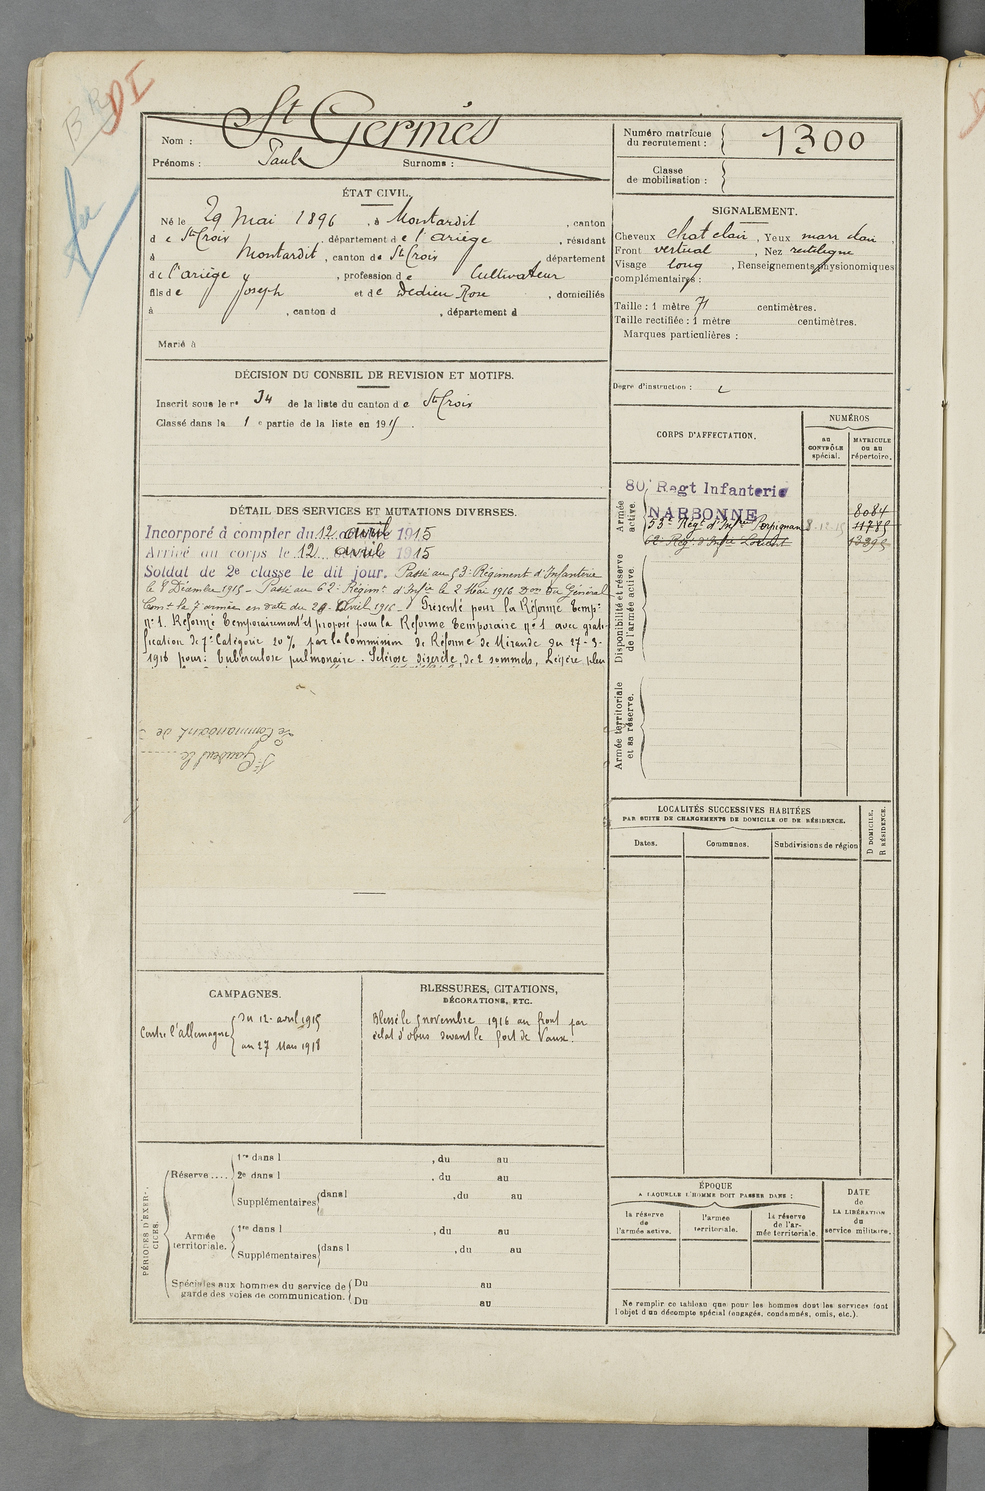 BR DI
Nom : St Germés
Prénoms : Paul Surnoms :
Numéro matricule du recrutement : 1300
Classe de mobilisation :
ÉTAT CIVIL.
Né le 29 Mai 1896, à Montardit, canton
de St Croix, département de l'ariège, résidant
à Montardit, canton de St Croix département
de l'ariège, profession de Cultivateur
fils de Joseph et de Dedieu Rose, domiciliés
à , canton d , département d
Marié à
SIGNALEMENT.
Cheveux chat clair, Yeux marr clair,
Front vertical, Nez rectiligne
Visage long, Renseignements physionomiques
complémentaires :
Taille : 1 mètre 71 centimètres.
Taille rectifiée : 1 mètre centimètres.
Marques particulières :
Degré d'instruction : 2
DÉCISION DU CONSEIL DE REVISION ET MOTIFS.
Inscrit sous le n° 34 de la liste du canton de St Croix
Classé dans la 1 e partie de la liste en 1915.
CORPS D'AFFECTATION.
NUMÉROS
au CONTRÔLE spécial.
MATRICULE ou au répertoire.
Armée active.
80, Regt Infanterie
NARBONNE 8084
53e Régt d'Infrie Perpignan 11785
62e Reg. d'Infie Lorient 13395
Disponibilité et réserve de l'armée active.
Armée territoriale et sa réserve.
DÉTAIL DES SERVICES ET MUTATIONS DIVERSES.
Incorporé à compter du 12 avril 1915
Arrivé au corps le 12 avril 1915
Soldat de 2e classe le dit jour. Passé au 53e Régiment d'Infanterie
le 8 Décembre 1915 - Passé au 62e Régimt d'Infie le 2 Mai 1916 Don du Général
Comt la 7 armée en date du 29 Avril 1916 - Présenté pour la Réforme Temp.
n°1. Réformé Temporairement et proposé pour la Réforme Temporaire n°1 avec grati-
fication de 7e Catégorie 20% par la Commission de Réforme de Mirande du 27-3-
1918 pour : Tuberculose pulmonaire. Sclérose discrète, de 2 sommets, Légère pleu
St Gaudens le
Le Commandant de
LOCALITÉS SUCCESSIVES HABITÉES
PAR SUITE DE CHANGEMENTS DE DOMICILE OU DE RÉSIDENCE.
Dates. Communes. Subdivisions de région
D DOMICILE. R RÉSIDENCE.
CAMPAGNES.
Contre l'allemagne
du 12 avril 1915
au 27 Mars 1918
BLESSURES, CITATIONS,
DÉCORATIONS, ETC.
Blessé le 5 novembre 1916 au front par
éclat d'obus devant le fort de Vaux.
PÉRIODES D'EXERCICES.
Réserve ....
1re dans l , du au
2e dans l , du au
Supplémentaires dans l , du au
Armée territoriale.
1re dans l , du au
Supplémentaires dans l , du au
Spéciales aux hommes du service de garde des voies de communication.
Du au
Du au
ÉPOQUE
A LAQUELLE L'HOMME DOIT PASSER DANS :
la réserve de l'armée active.
l'armée territoriale.
la réserve de l'armée territoriale.
DATE de LA LIBÉRATION du service militaire.
Ne remplir ce tableau que pour les hommes dont les services font
l'objet d'un décompte spécial (engagés, condamnés, omis, etc.).